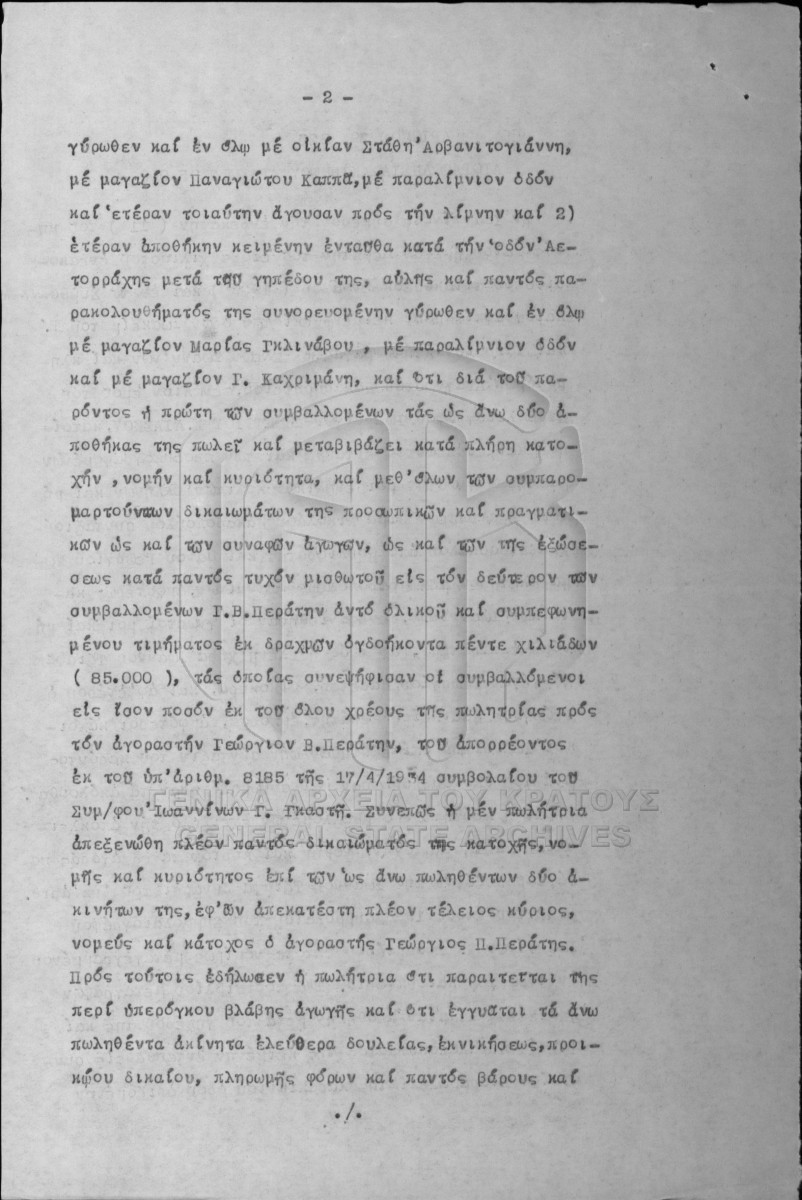 - 2 -
γύρωθεν καί ἐν ὅλῳ μέ οἰκίαν Στάθη Ἀρβανιτογιάννη,
μέ μαγαζίον Παναγιώτου Καππᾶ, μέ παραλίμνιον ὁδόν
καί ἑτέραν τοιαύτην ἄγουσαν πρός τήν λίμνην καί 2)
ἑτέραν ἀποθήκην κειμένην ἐνταῦθα κατά τήν ὁδόν Ἀε-
τορράχης μετά τοῦ γηπέδου της, αὐλῆς καί παντός πα-
ρακολουθήματός της συνορευομένην γύρωθεν καί ἐν ὅλῳ
μέ μαγαζίον Μαρίας Γκλινάβου , μέ παραλίμνιον ὁδόν
καί μέ μαγαζίον Γ. Καχριμάνη, καί ὅτι διά τοῦ πα-
ρόντος ἡ πρώτη τῶν συμβαλλομένων τάς ὡς ἄνω δύο ἀ-
ποθήκας της πωλεῖ καί μεταβιβάζει κατά πλήρη κατο-
χήν , νομήν καί κυριότητα, καί μεθ' ὅλων τῶν συμπαρο-
μαρτούντων δικαιωμάτων της προσωπικῶν καί πραγματι-
κῶν ὡς καί τῶν συναφῶν ἀγωγῶν, ὡς καί τῶν τῆς ἐξώσε-
σεως κατά παντός τυχόν μισθωτοῦ εἰς τόν δεύτερον τῶν
συμβαλλομένων Γ.Β.Περάτην ἀντό ὁλικοῦ καί συμπεφωνη-
μένου τιμήματος ἐκ δραχμῶν ὀγδοήκοντα πέντε χιλιάδων
( 85.000 ), τάς ὁποίας συνεψήφισαν οἱ συμβαλλόμενοι
εἰς ἴσον ποσόν ἐκ τοῦ ὅλου χρέους τῆς πωλητρίας πρός
τόν ἀγοραστήν Γεώργιον Β.Περάτην, τοῦ ἀπορρέοντος
ἐκ τοῦ ὑπ' ἀριθμ. 8185 τῆς 17/4/1954 συμβολαίου τοῦ
Συμ/φου Ἰωαννίνων Γ. Γκαστῆ. Συνεπῶς ἡ μέν πωλήτρια
ἀπεξενώθη πλέον παντός δικαιώματός της κατοχῆς, νο-
μῆς καί κυριότητος ἐπί τῶν ὡς ἄνω πωληθέντων δύο ἀ-
κινήτων της, ἐφ' ὧν ἀπεκατέστη πλέον τέλειος κύριος,
νομεύς καί κάτοχος ὁ ἀγοραστής Γεώργιος Π.Περάτης.
Πρός τούτοις ἐδήλωσεν ἡ πωλήτρια ὅτι παραιτεῖται τῆς
περί ὑπερόγκου βλάβης ἀγωγῆς καί ὅτι ἐγγυᾶται τά ἄνω
πωληθέντα ἀκίνητα ἐλεύθερα δουλείας, ἐκνικήσεως, προι-
κῴου δικαίου, πληρωμῆς φόρων καί παντός βάρους καί
./.
ΓΕΝΙΚΑ ΑΡΧΕΙΑ ΤΟΥ ΚΡΑΤΟΥΣ
GENERAL STATE ARCHIVES